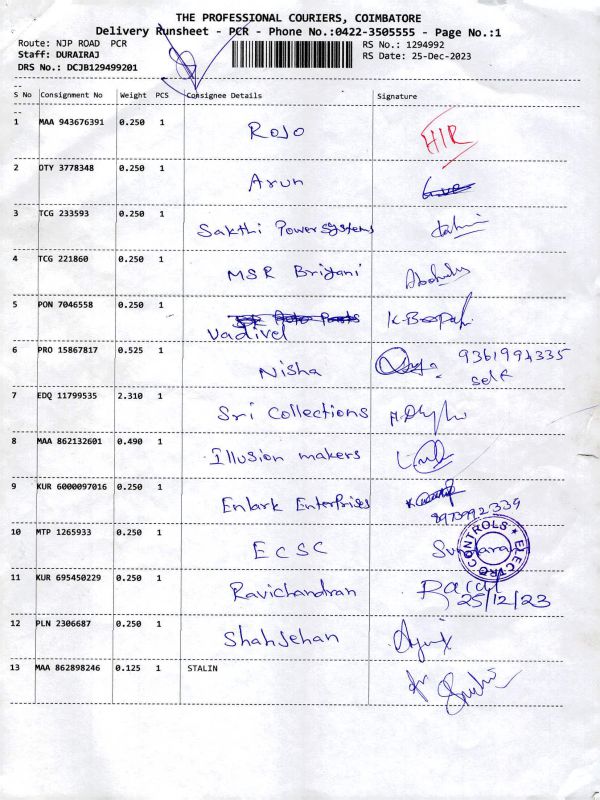 THE PROFESSIONAL COURIERS, COIMBATORE
Delivery Runsheet - PCR - Phone No.:0422-3505555 - Page No.:1
Route: NJP ROAD PCR RS No.: 1294992
Staff: DURAIRAJ RS Date: 25-Dec-2023
DRS No.: DCJB129499201
S No Consignment No Weight PCS Consignee Details Signature
1 MAA 943676391 0.250 1 Rojo HIR
2 DTY 3778348 0.250 1 Arun
3 TCG 233593 0.250 1 Sakthi Powersystems
4 TCG 221860 0.250 1 MSR Briyani
5 PON 7046558 0.250 1
Vadivel
6 PRO 15867817 0.525 1 Nisha 9361994335
self
7 EDQ 11799535 2.310 1 Sri Collections
8 MAA 862132601 0.490 1 Illusion makers
9 KUR 6000097016 0.250 1 Enlark Enterprises
8973992339
10 MTP 1265933 0.250 1 ECSC
ELECTRO CONTROLS
11 KUR 695450229 0.250 1 Ravichandran
25/12/23
12 PLN 2306687 0.250 1 Shahjehan
13 MAA 862898246 0.125 1 STALIN